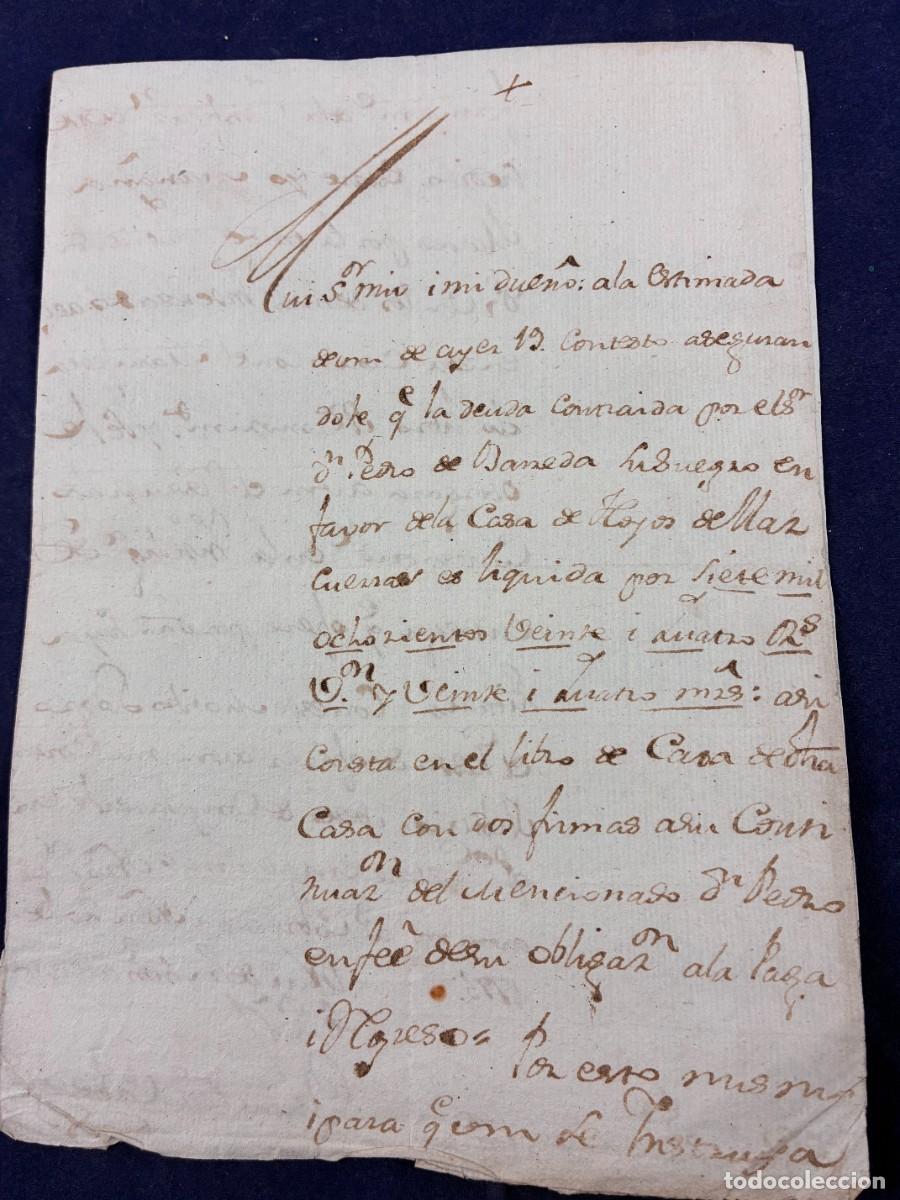 +
Mui Sr mio i mi dueño: a la estimada
de vm de ayer 13. Contesto aseguran
dole qe la deuda contraida por el Sr
Dn Pedro de Barreda su suegro en
favor de la Casa de Hoyos de Maz
cuerras es liquida por siete mil
ochozientos veinte i quatro Rs
Vn y veinte i quatro mrs: asi
Consta en el libro de Caxa de dha
Casa con dos firmas a su Conti
nuazn del mencionado Dn Pedro
en fee de su obligazn a la Paga
i
Por esto mismo
i para qe vm se Instruya
todocoleccion